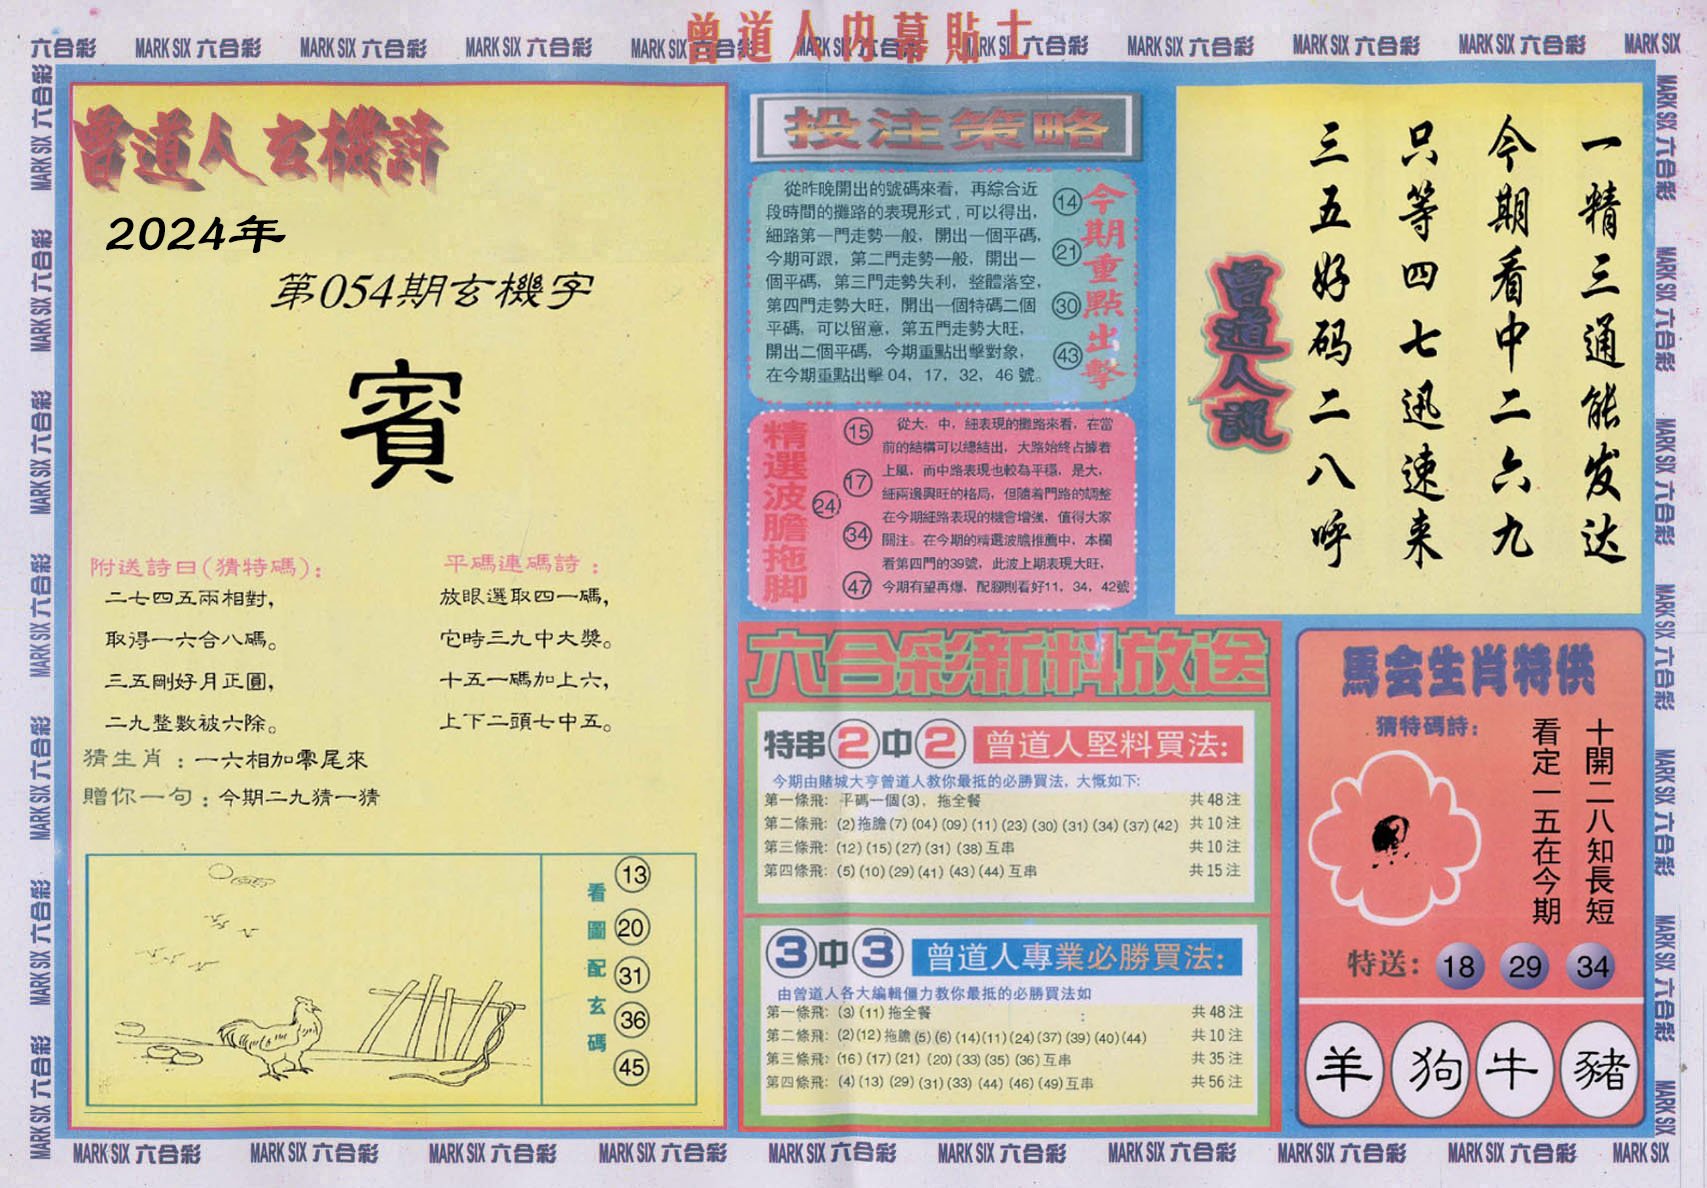 曾道人内幕貼士
六合彩 MARK SIX 六合彩 MARK SIX 六合彩 MARK SIX 六合彩 MARK SIX 六合彩 MARK SIX 六合彩 MARK SIX 六合彩 MARK SIX 六合彩 MARK SIX 六合彩 MARK SIX 六合彩 MARK SIX
曾道人玄機詩
2024年
第054期玄機字
賓
附送詩曰(猜特碼):
二七四五兩相對,
取得一六合八碼。
三五剛好月正圓,
二九整數被六除。
平碼連碼詩:
放眼選取四一碼,
它時三九中大獎。
十五一碼加上六,
上下二頭七中五。
猜生肖:一六相加零尾來
贈你一句:今期二九猜一猜
看圖配玄碼
13
20
31
36
45
投注策略
從昨晚開出的號碼來看,再綜合近
段時間的攤路的表現形式,可以得出,
細路第一門走勢一般,開出一個平碼,
今期可跟,第二門走勢一般,開出一
個平碼,第三門走勢失利,整體落空,
第四門走勢大旺,開出一個特碼二個
平碼,可以留意,第五門走勢大旺,
開出二個平碼,今期重點出擊對象,
在今期重點出擊04,17,32,46號。
14
21
30
43
今期重點出擊
精選波膽拖脚
15
17
24
34
47
從大,中,細表現的攤路來看,在當
前的結構可以總結出,大路始終占據着
上風,而中路表現也較為平穩,是大,
細兩邊興旺的格局,但隨着門路的調整
在今期細路表現的機會增強,值得大家
關注。在今期的精選波膽推薦中,本欄
看第四門的39號,此波上期表現大旺,
今期有望再爆,配腳則看好11,34,42號
六合彩新料放送
特串2中2 曾道人堅料買法:
今期由賭城大亨曾道人教你最抵的必勝買法,大慨如下:
第一條飛: 平碼一個(3),拖全餐 共48注
第二條飛: (2)拖膽(7)(04)(09)(11)(23)(30)(31)(34)(37)(42) 共10注
第三條飛: (12)(15)(27)(31)(38)互串 共10注
第四條飛: (5)(10)(29)(41)(43)(44)互串 共15注
3中3 曾道人專業必勝買法:
由曾道人各大編輯僵力教你最抵的必勝買法如
第一條飛: (3)(11)拖全餐 : 共48注
第二條飛: (2)(12)拖膽(5)(6)(14)(11)(24)(37)(39)(40)(44) 共10注
第三條飛: (16)(17)(21)(20)(33)(35)(36)互串 共35注
第四條飛: (4)(13)(29)(31)(33)(44)(46)(49)互串 共56注
一精三通能发达
今期看中二六九
只等四七迅速来
三五好码二八呼
曾道人説
馬会生肖特供
猜特碼詩:
十開二八知長短
看定一五在今期
特送: 18 29 34
羊 狗 牛 豬
MARK SIX 六合彩 MARK SIX 六合彩 MARK SIX 六合彩 MARK SIX 六合彩 MARK SIX 六合彩 MARK SIX 六合彩 MARK SIX 六合彩 MARK SIX 六合彩 MARK SIX 六合彩 MARK SIX